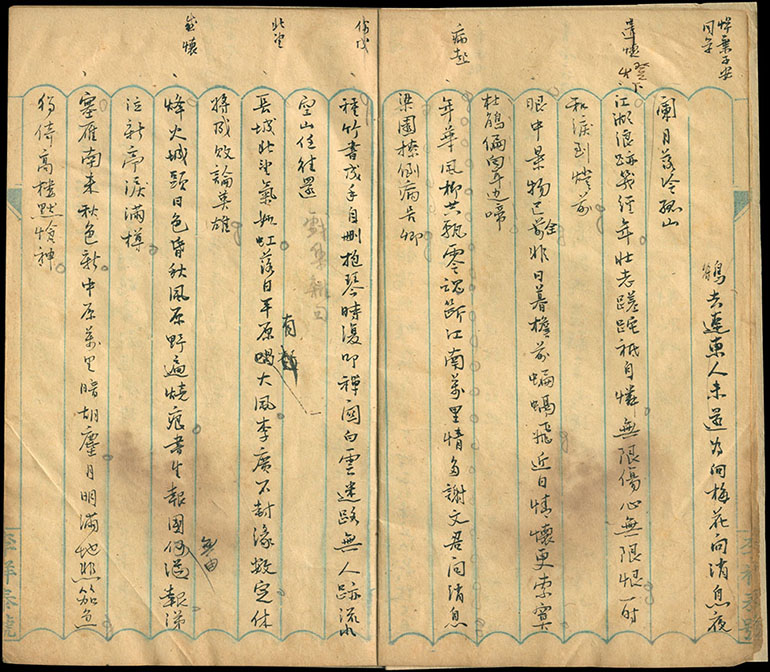 悼葉子安
同年
鶴去遼東人未還為問梅花問消息夜
闌月落冷孤山
遣懷
燈下
江湖浪跡幾經年壯志蹉跎祇自憐無限傷心無限恨一時
和淚到燈前
眼中景物已全非日暮檐前蝙蝠飛近日情懷更索寞
杜鵑偏向耳邊啼
病起
年華風柳共飄零魂斷江南萬里情多謝文君問消息
梁園憔倒病長卿
種竹書成手自刪抱琴時復叩禪關白雲迷路無人跡流水
空山任往還
北望
長城北望氣如虹落日平原唱大風李廣不封緣數定休
將成敗論英雄
有
感懷
烽火城頭日色昏秋風原野遍燒痕書生報國何遇報涕
無由
泣新亭淚滿樽
塞雁南來秋色新中原萬里暗胡塵月明滿地悲笳急
獨倚高樓黯愴神